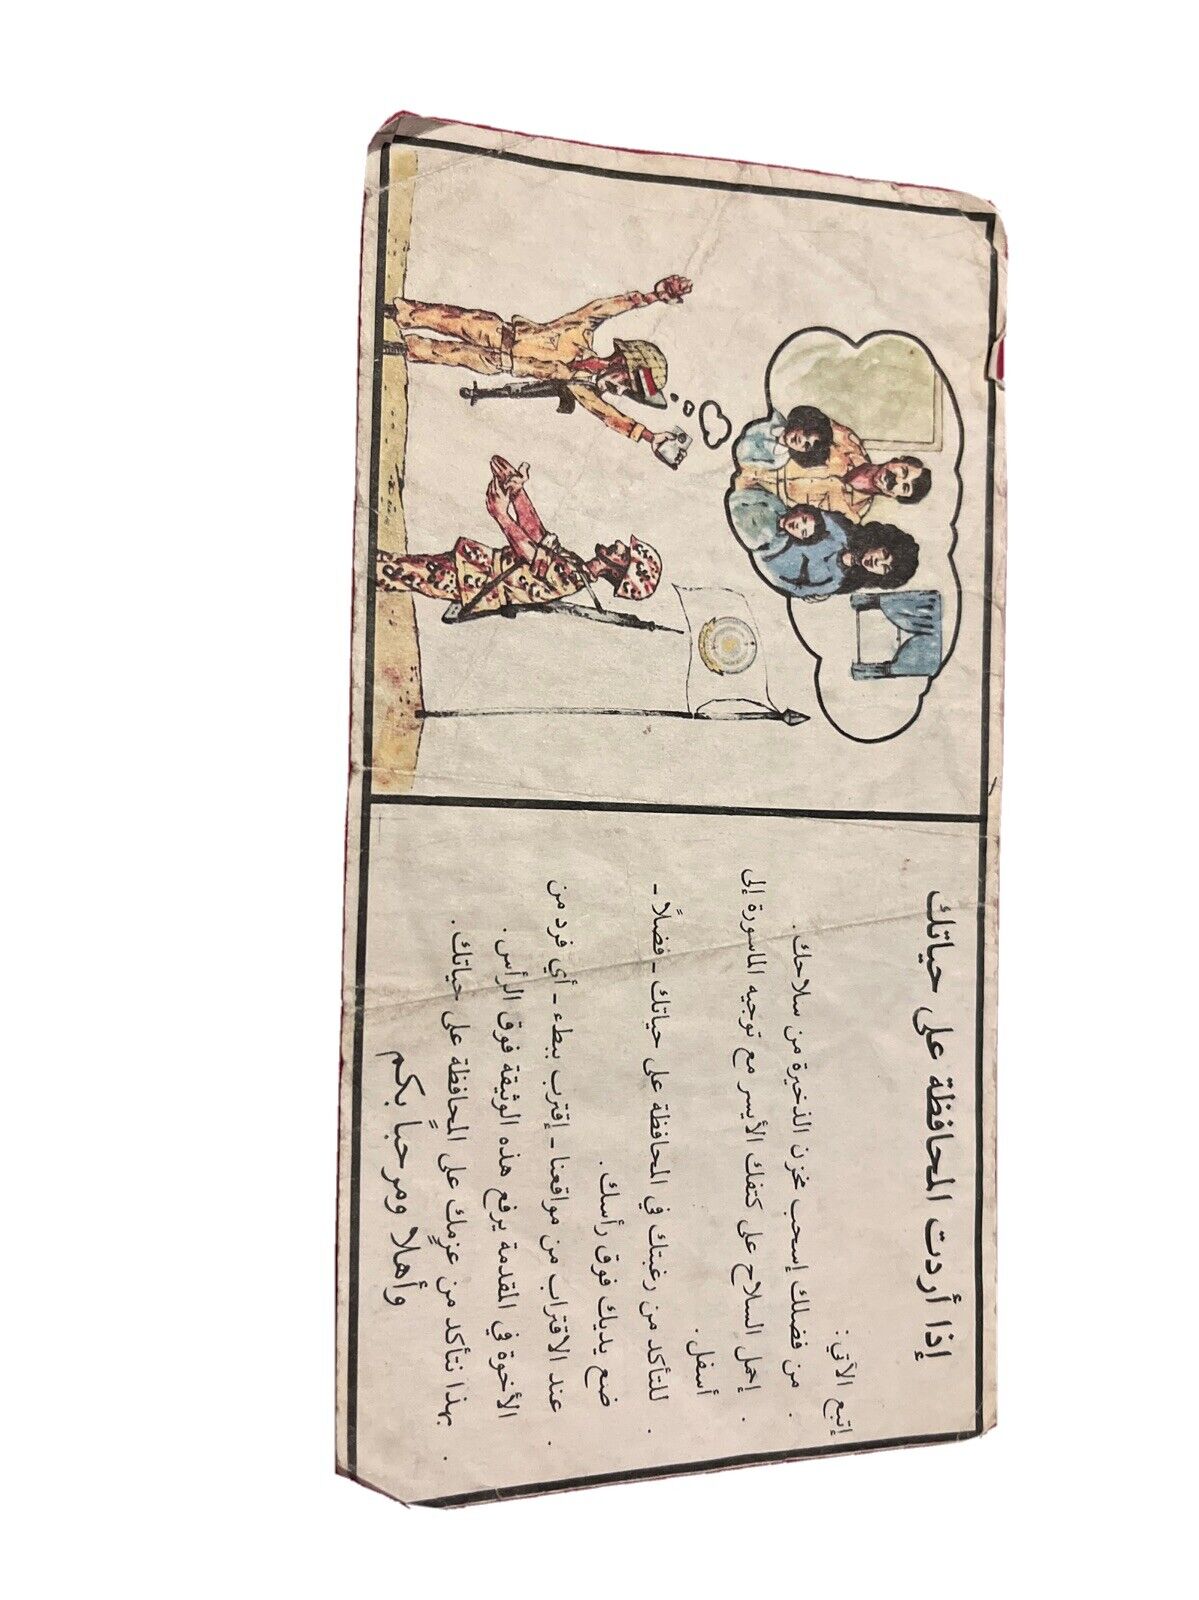 إذا أردت المحافظة على حياتك
إتبع الآتي:
. من فضلك إسحب مخزن الذخيرة من سلاحك.
. إحمل السلاح على كتفك الأيسر مع توجيه الماسورة إلى
أسفل.
. للتأكد من رغبتك في المحافظة على حياتك - فضلاً -
ضع يديك فوق رأسك.
. عند الاقتراب من مواقعنا - إقترب ببطء - أي فرد من
الأخوة في المقدمة يرفع هذه الوثيقة فوق الرأس.
. بهذا نتأكد من عزمك على المحافظة على حياتك.
وأهلا ومرحباً بكم